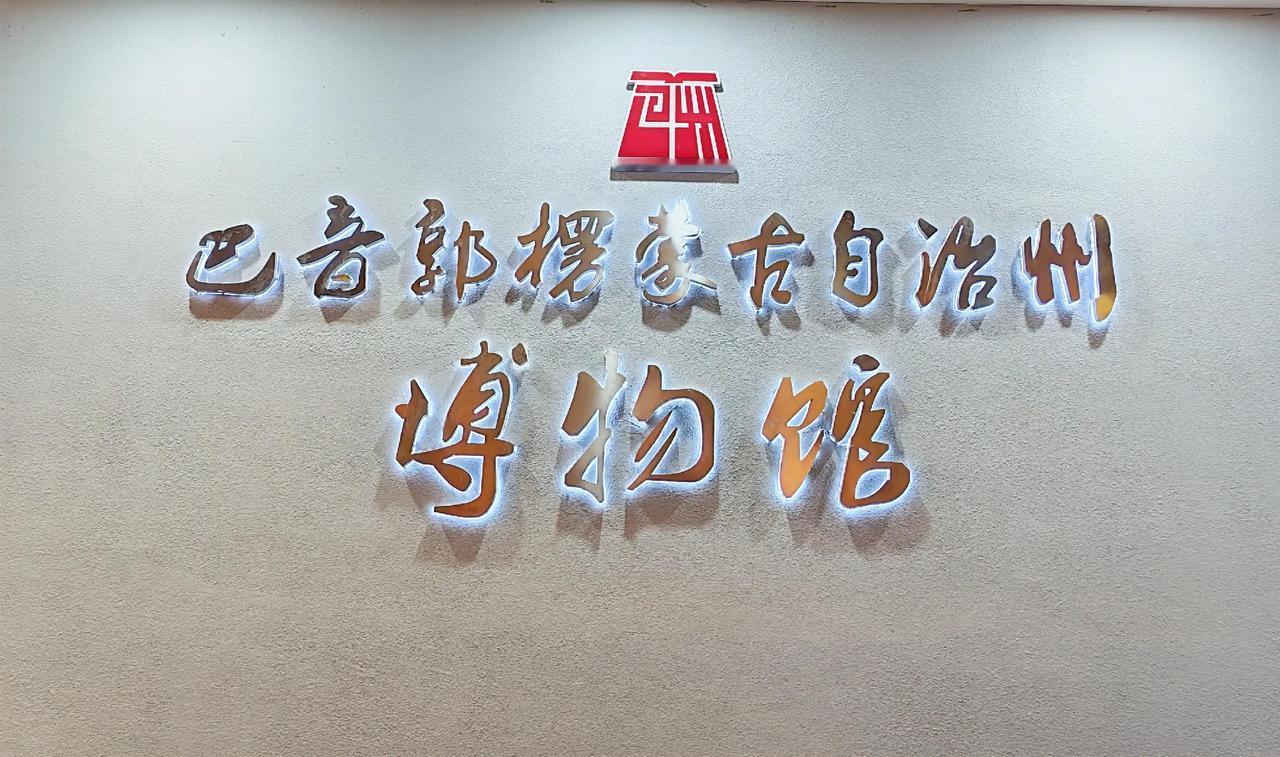 巴音郭楞蒙古自治州
博物馆